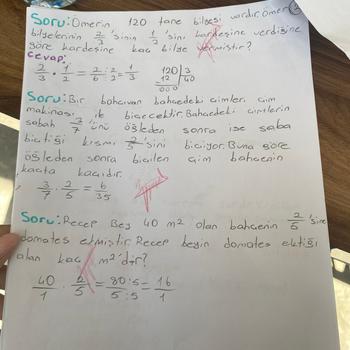 Soru: Ömerin 120 tane bilyesi vardır. Ömer
bilyelerinin 2/3 'sinin 1/2 'sini kardeşine verdiğine
göre kardeşine kaç bilye vermiştir?
Cevap:
2/3 · 1/2 = 2/6 :2/:2 = 1/3 120 | 3
-12 40
000
Soru: Bir bahçıvan bahçedeki çimleri çim
makinası ile biçecektir. Bahçedeki çimlerin
sabah 3/7 'ünü öğleden sonra ise sabah
biçtiği kısmı 2/5 'sini biçiyor. Buna göre
öğleden sonra biçilen çim bahçenin
kaçta kaçıdır.
3/7 · 2/5 = 6/35
Soru: Recep Bey 40 m² olan bahçenin 2/5 'sine
domates ekmiştir. Recep beyin domates ektiği
alan kaç m²'dir?
40/1 · 2/5 = 80:5/5:5 = 16/1